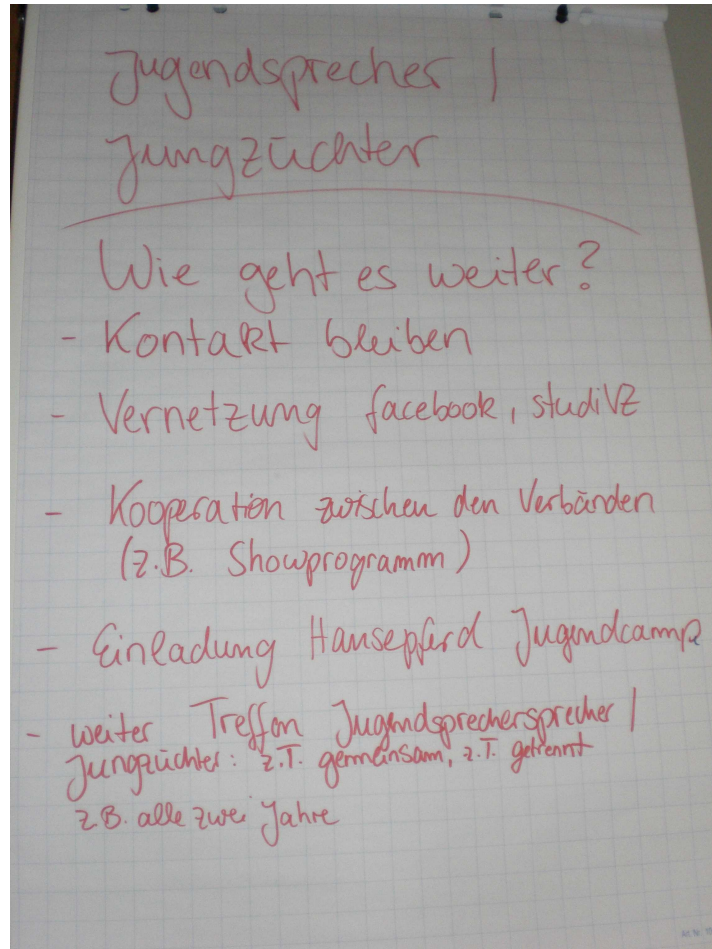 Jugendsprecher /
Jungzüchter
Wie geht es weiter?
- Kontakt bleiben
- Vernetzung facebook, studiVZ
- Kooperation zwischen den Verbänden
(z.B. Showprogramm)
- Einladung Hansepferd Jugendcamp
- weiter Treffen Jugendsprechersprecher /
Jungzüchter: z.T. gemeinsam, z.T. getrennt
z.B. alle zwei Jahre